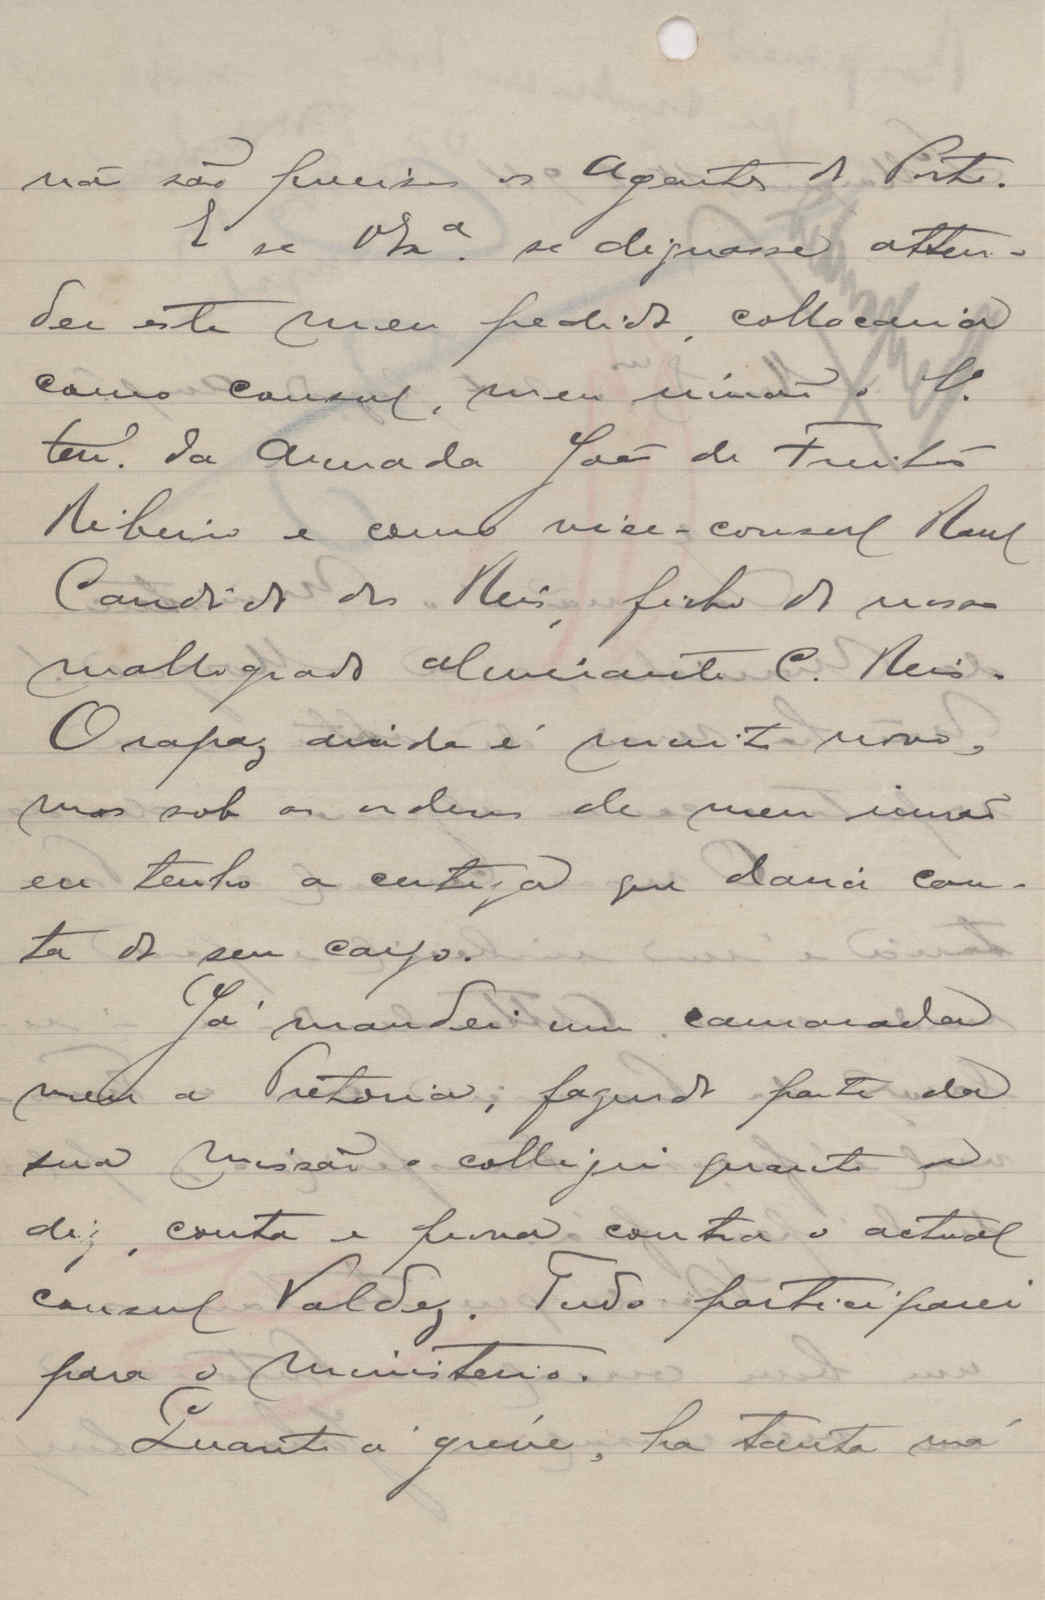 não são precisos os Agentes do Porto.
E se V Exª. se dignasse atten-
der este meu pedido, collocaria
como consul, meu irmão o 1º.
ten. da Armada João de Freitas
Ribeiro e como vice-consul Raul
Candido dos Reis, filho do nosso
mallogrado almirante C. Reis.
O rapaz ainda é muito novo,
mas sob as ordens de meu irmão
eu tenho a certeza que dará con-
ta do seu cargo.
Já mandei um camarada
meu a Pretoria, fazendo parte da
sua missão o colligir quanto se
diz, conta e prova contra o actual
consul Valdez. Tudo participarei
para o ministerio.
Quanto á gréve, ha tanta má